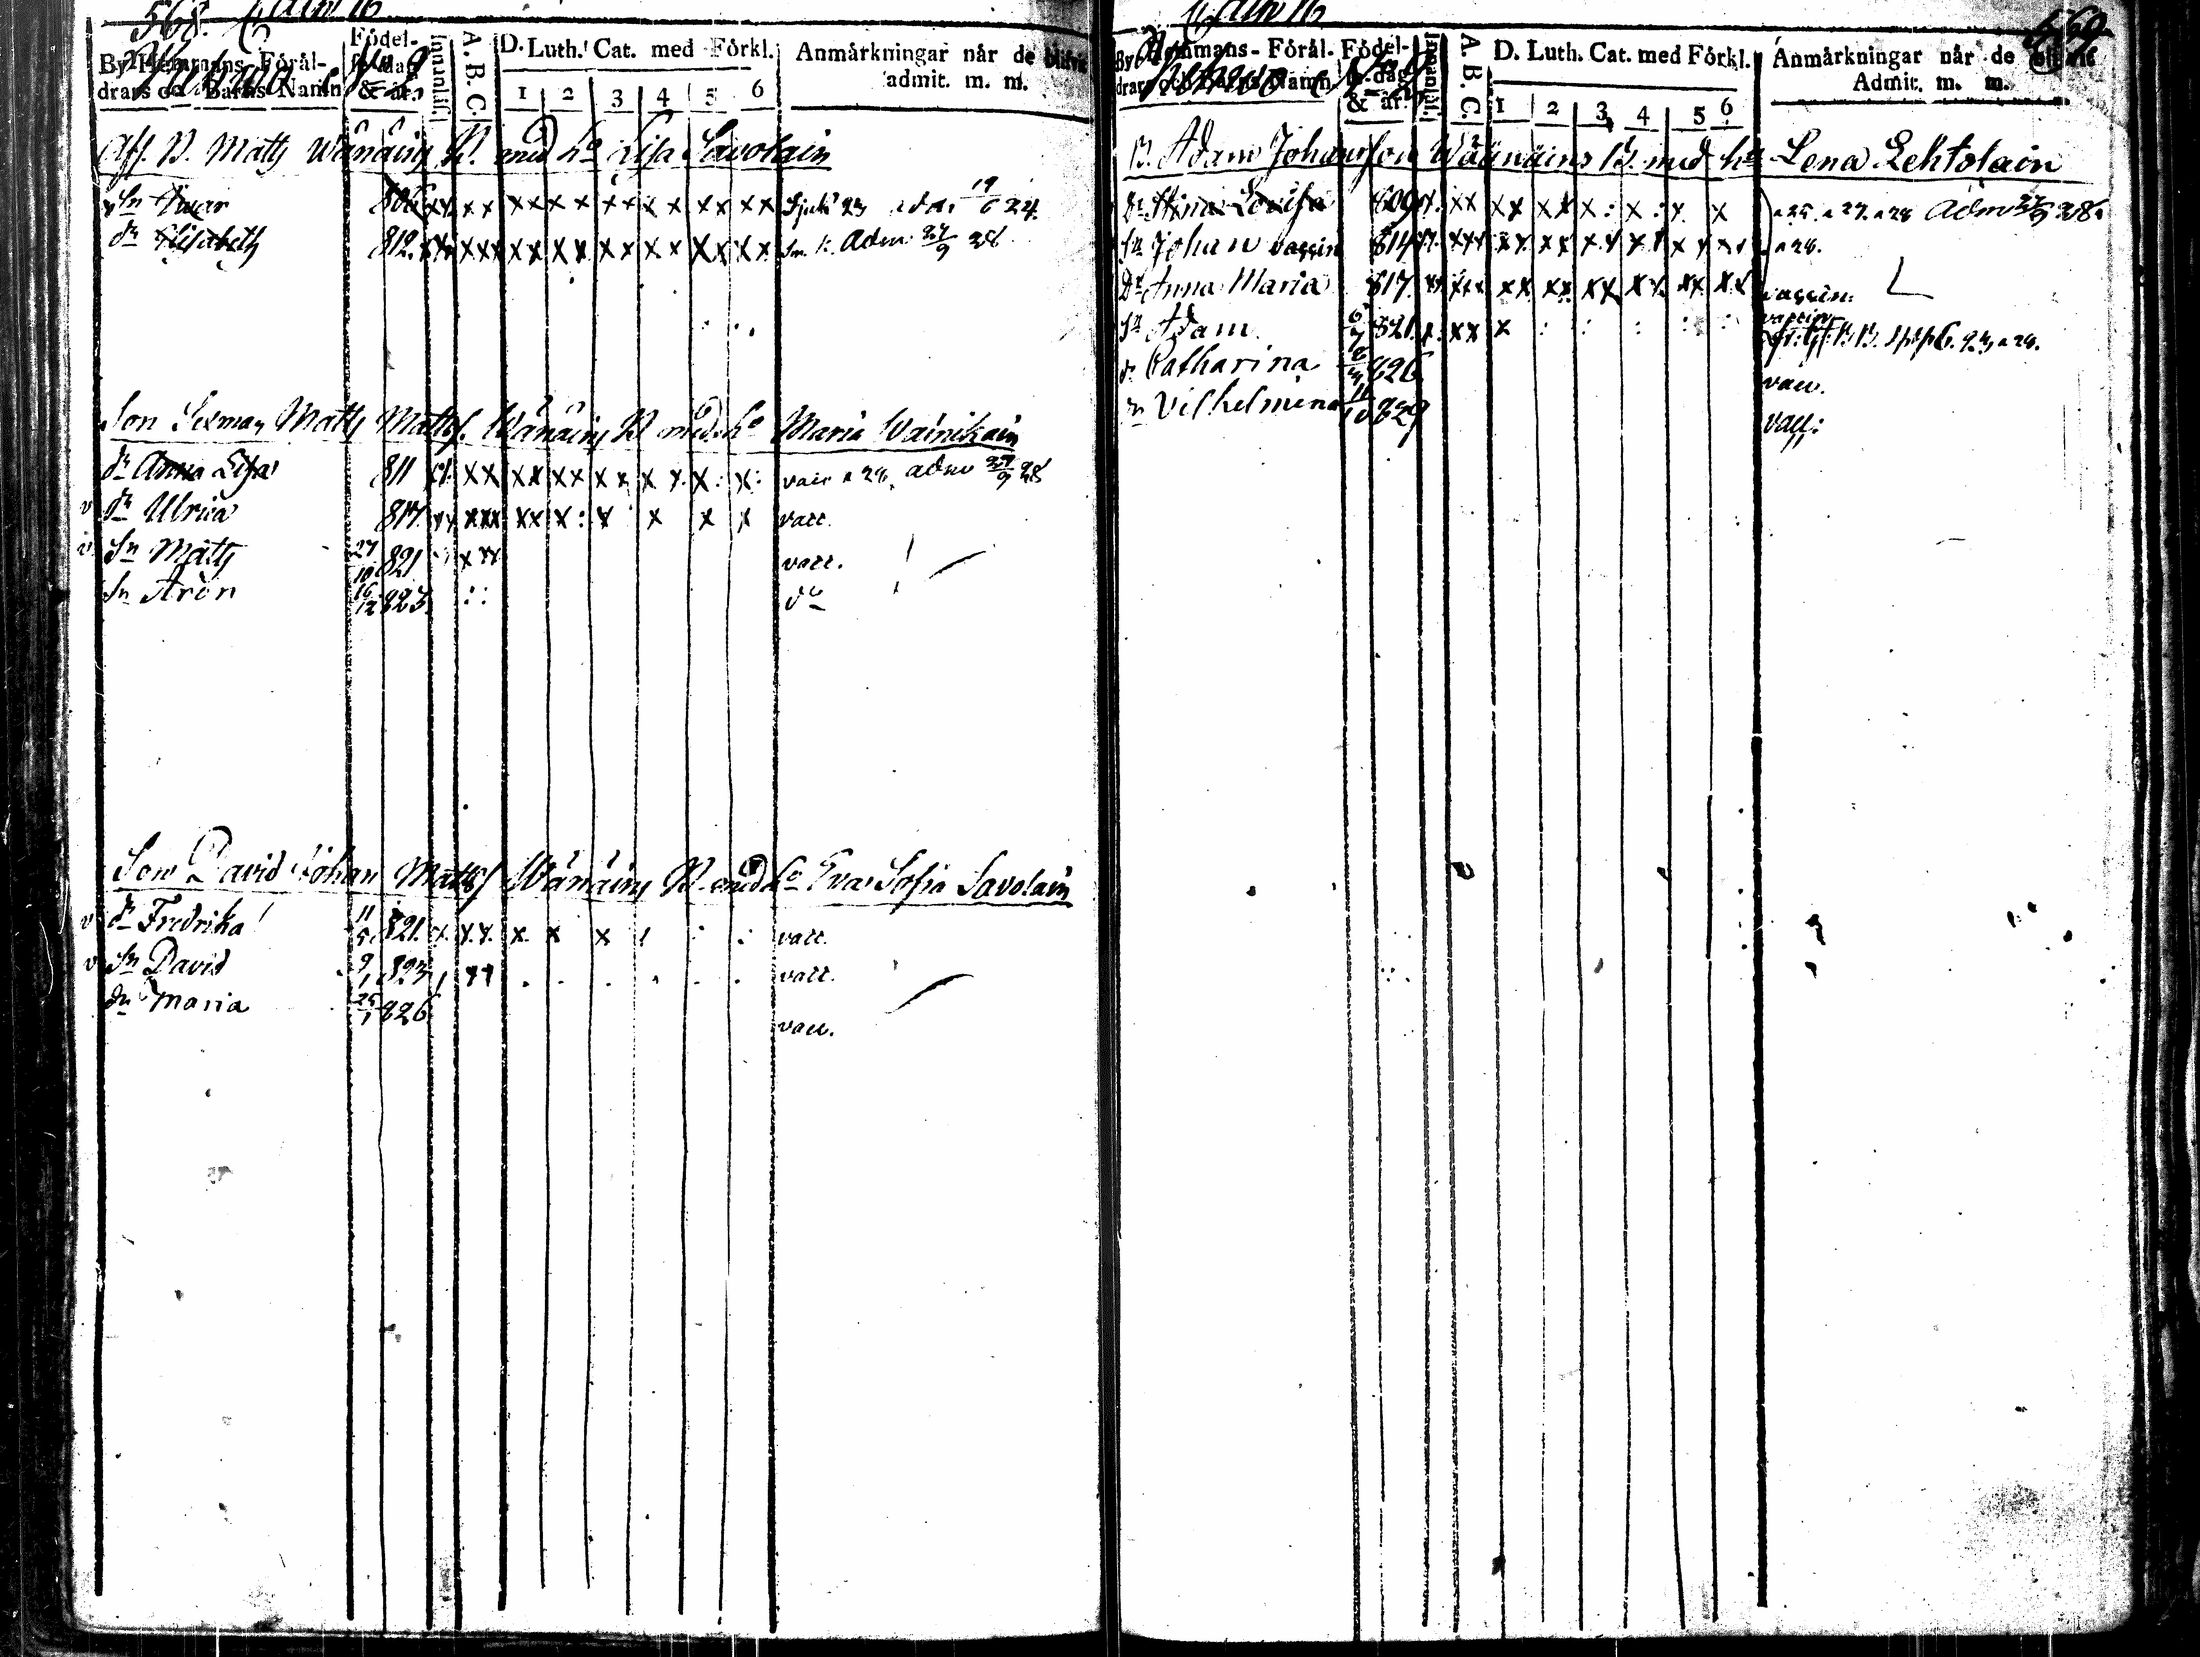 568.
By Hemmans-Föräl-
drars och Barns Namn
Födel-
sedag
& år.
Innanläs.
A. B. C.
D. Luth. Cat. med Förkl.
1 2 3 4 5 6
Anmärkningar när de blifvit
admit. m. m.
Matts Wänäinn B. med ho Lisa Savolain
Sn Ivar 806 xx xx xx xx xx xx xx
dr Elisabeth 812 xx xxx xx xx xx xx xx xx Adm 27/9 28
Son Sexman Matts Matts. Wänäinn B med ho Maria Wainikain
dr Anna Lisa 811 xx xx xx xx x x x. x: vacc a 28, adm 27/9 28
v dr Ulrica 817 xx xxx xx x: x x x x vacc.
v Sn Matts 27/10 821 x xx vacc.
Sn Aron 16/12 823 : : do
Son David Johan Matts Wänäinn B med ho Eva Sofia Savolain
v dr Fredrika 11/5 821. x. x.x. x. x x : : vacc.
v Sn David 9/1 823 xx . . . . . . vacc.
dr Maria 25/1 826 vacc.
569
By Hemmans-Föräl-
drars och Barns Namn
Födel-
sedag
& år
Innanläs.
A. B. C.
D. Luth. Cat. med Förkl.
1 2 3 4 5 6
Anmärkningar när de blifvit
Admit. m. m.
B. Adam Johansson Wäänäinn B. med ho Lena Lehtolain
Dr Stina Lovisa 809 x. xx xx xx x: x: x. x a 25. a 27. a 28 Adm 27/9 28.
Sn Johan vaccin 814 x. xxx xx xx xx xx xx xx a 28.
Dr Anna Maria 817. xx xxx xx xx xx xx xx xx vaccin.
Sn Adam 6/7 821. x. xx x : : : : : vaccin
dr Catharina 826 vacc.
dr Vilhelmina 11/10 829 vacc: